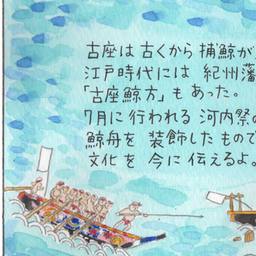 古座は古くから 捕鯨が
江戸時代には 紀州藩
「古座鯨方」も あった。
7月に行われる 河内祭の
鯨舟を 装飾したもので
文化を 今に伝えるよ。